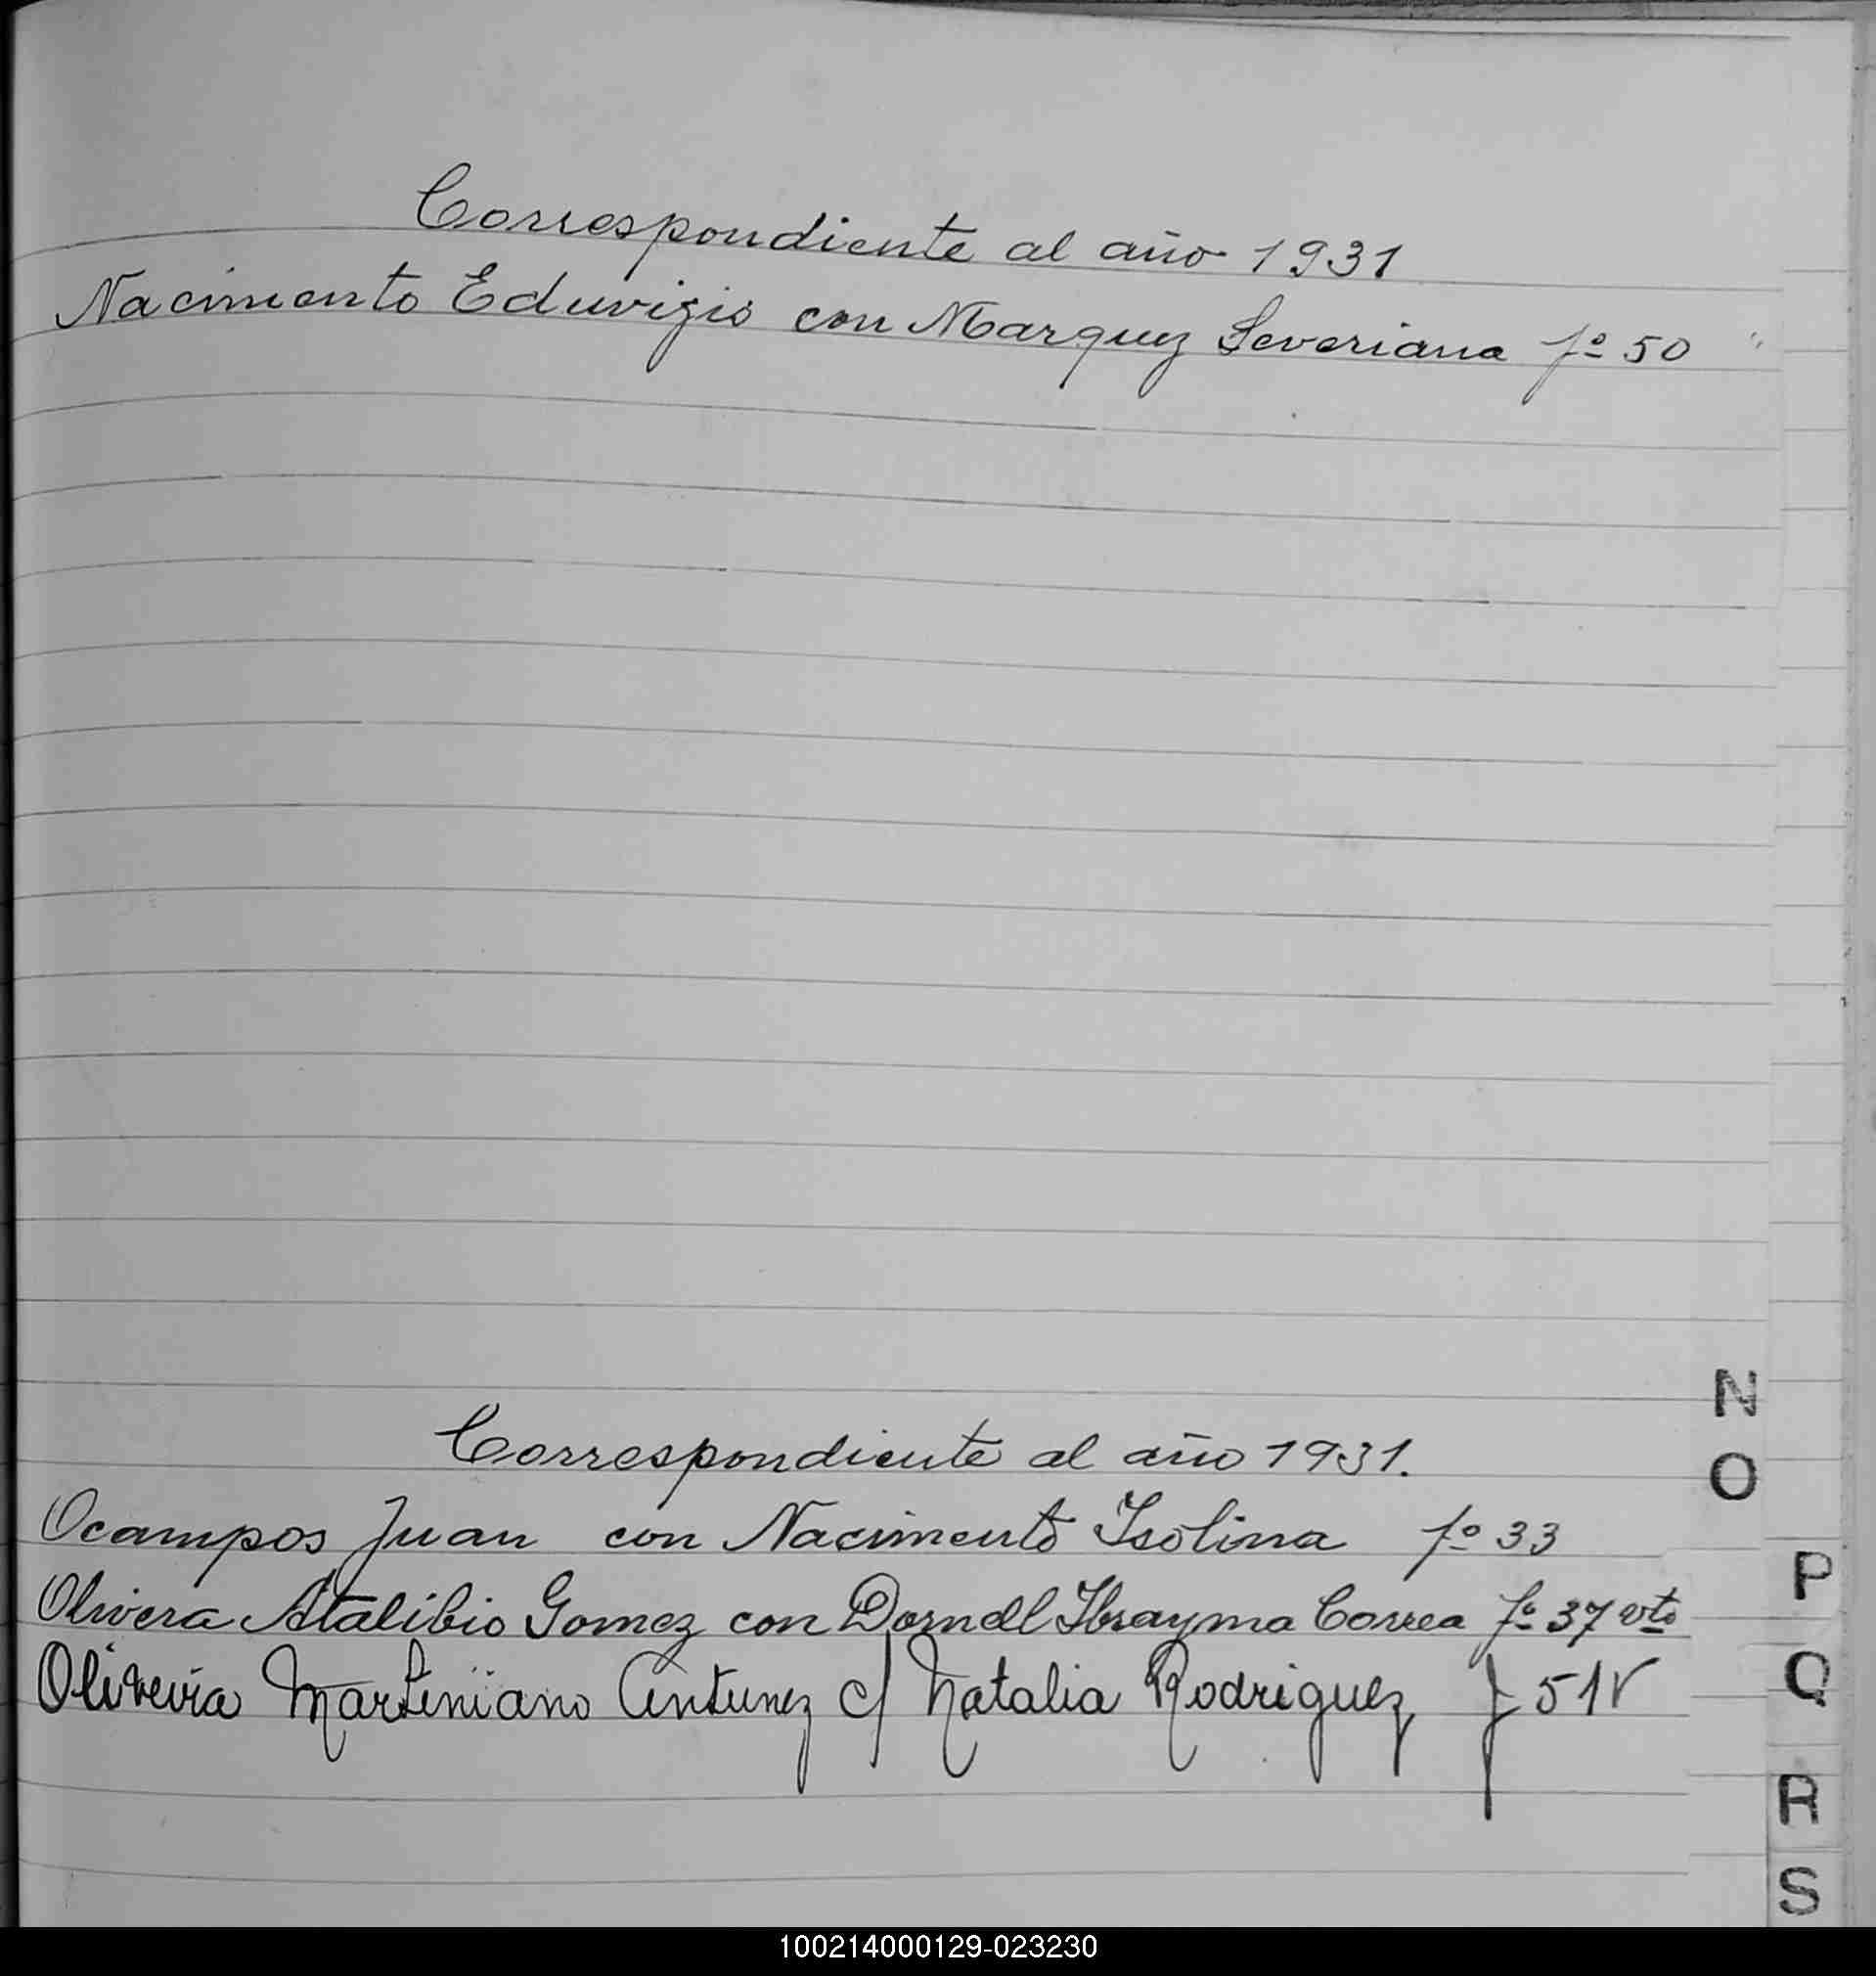 Correspondiente al año 1931
Nacimiento Eduvigis con Marquez Severiana fº 50
N
O
Correspondiente al año 1931.
Ocampos Juan con Nacimento Isolina fº 33
P
Olivera Atalibio Gomez con Dorndl Ibrayma Correa fº 37 vto
Oliveira Martiniano Antunez c/ Natalia Rodriguez f 51v
Q
R
S
100214000129-023230